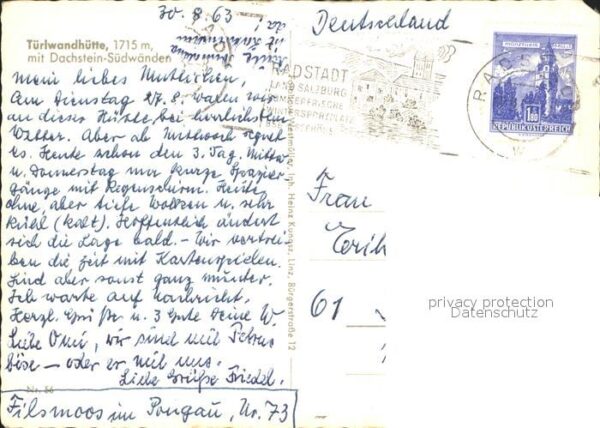 30. 8. 63
Deutschland
Türlwandhütte, 1715 m,
mit Dachstein-Südwänden
Mein liebes Muttichen,
Am Dienstag 27.8. waren wir
an dieser Hütte bei herrlichstem
Wetter. Aber ab Mittwoch regnet
es. Heute schon den 3. Tag. Mittw.
u. Donnerstag nur kurze Spazier-
gänge mit Regenschirm. Heute
ohne, aber tiefe Wolken u. sehr
kühl (kalt). Hoffentlich ändert
sich die Lage bald. – Wir vertrei-
ben die Zeit mit Kartenspielen.
Sind aber sonst ganz munter.
Ich warte auf Nachricht.
Herzl. Grüße u. 3 Gute Deine W.
Liebe Omi, wir sind mit Petrus
böse – oder er mit uns.
Liebe Grüße Friedel.
Nr. 56
Filzmoos im Pongau, Nr. 73
Inh. Heinz Konarz, Linz, Bürgerstraße 12
RADSTADT
LAND SALZBURG
SOMMERFRISCHE
WINTERSPORTPLATZ
RADS
1.80
REPUBLIK ÖSTERREICH
Frau
Erik
61
privacy protection
Datenschutz